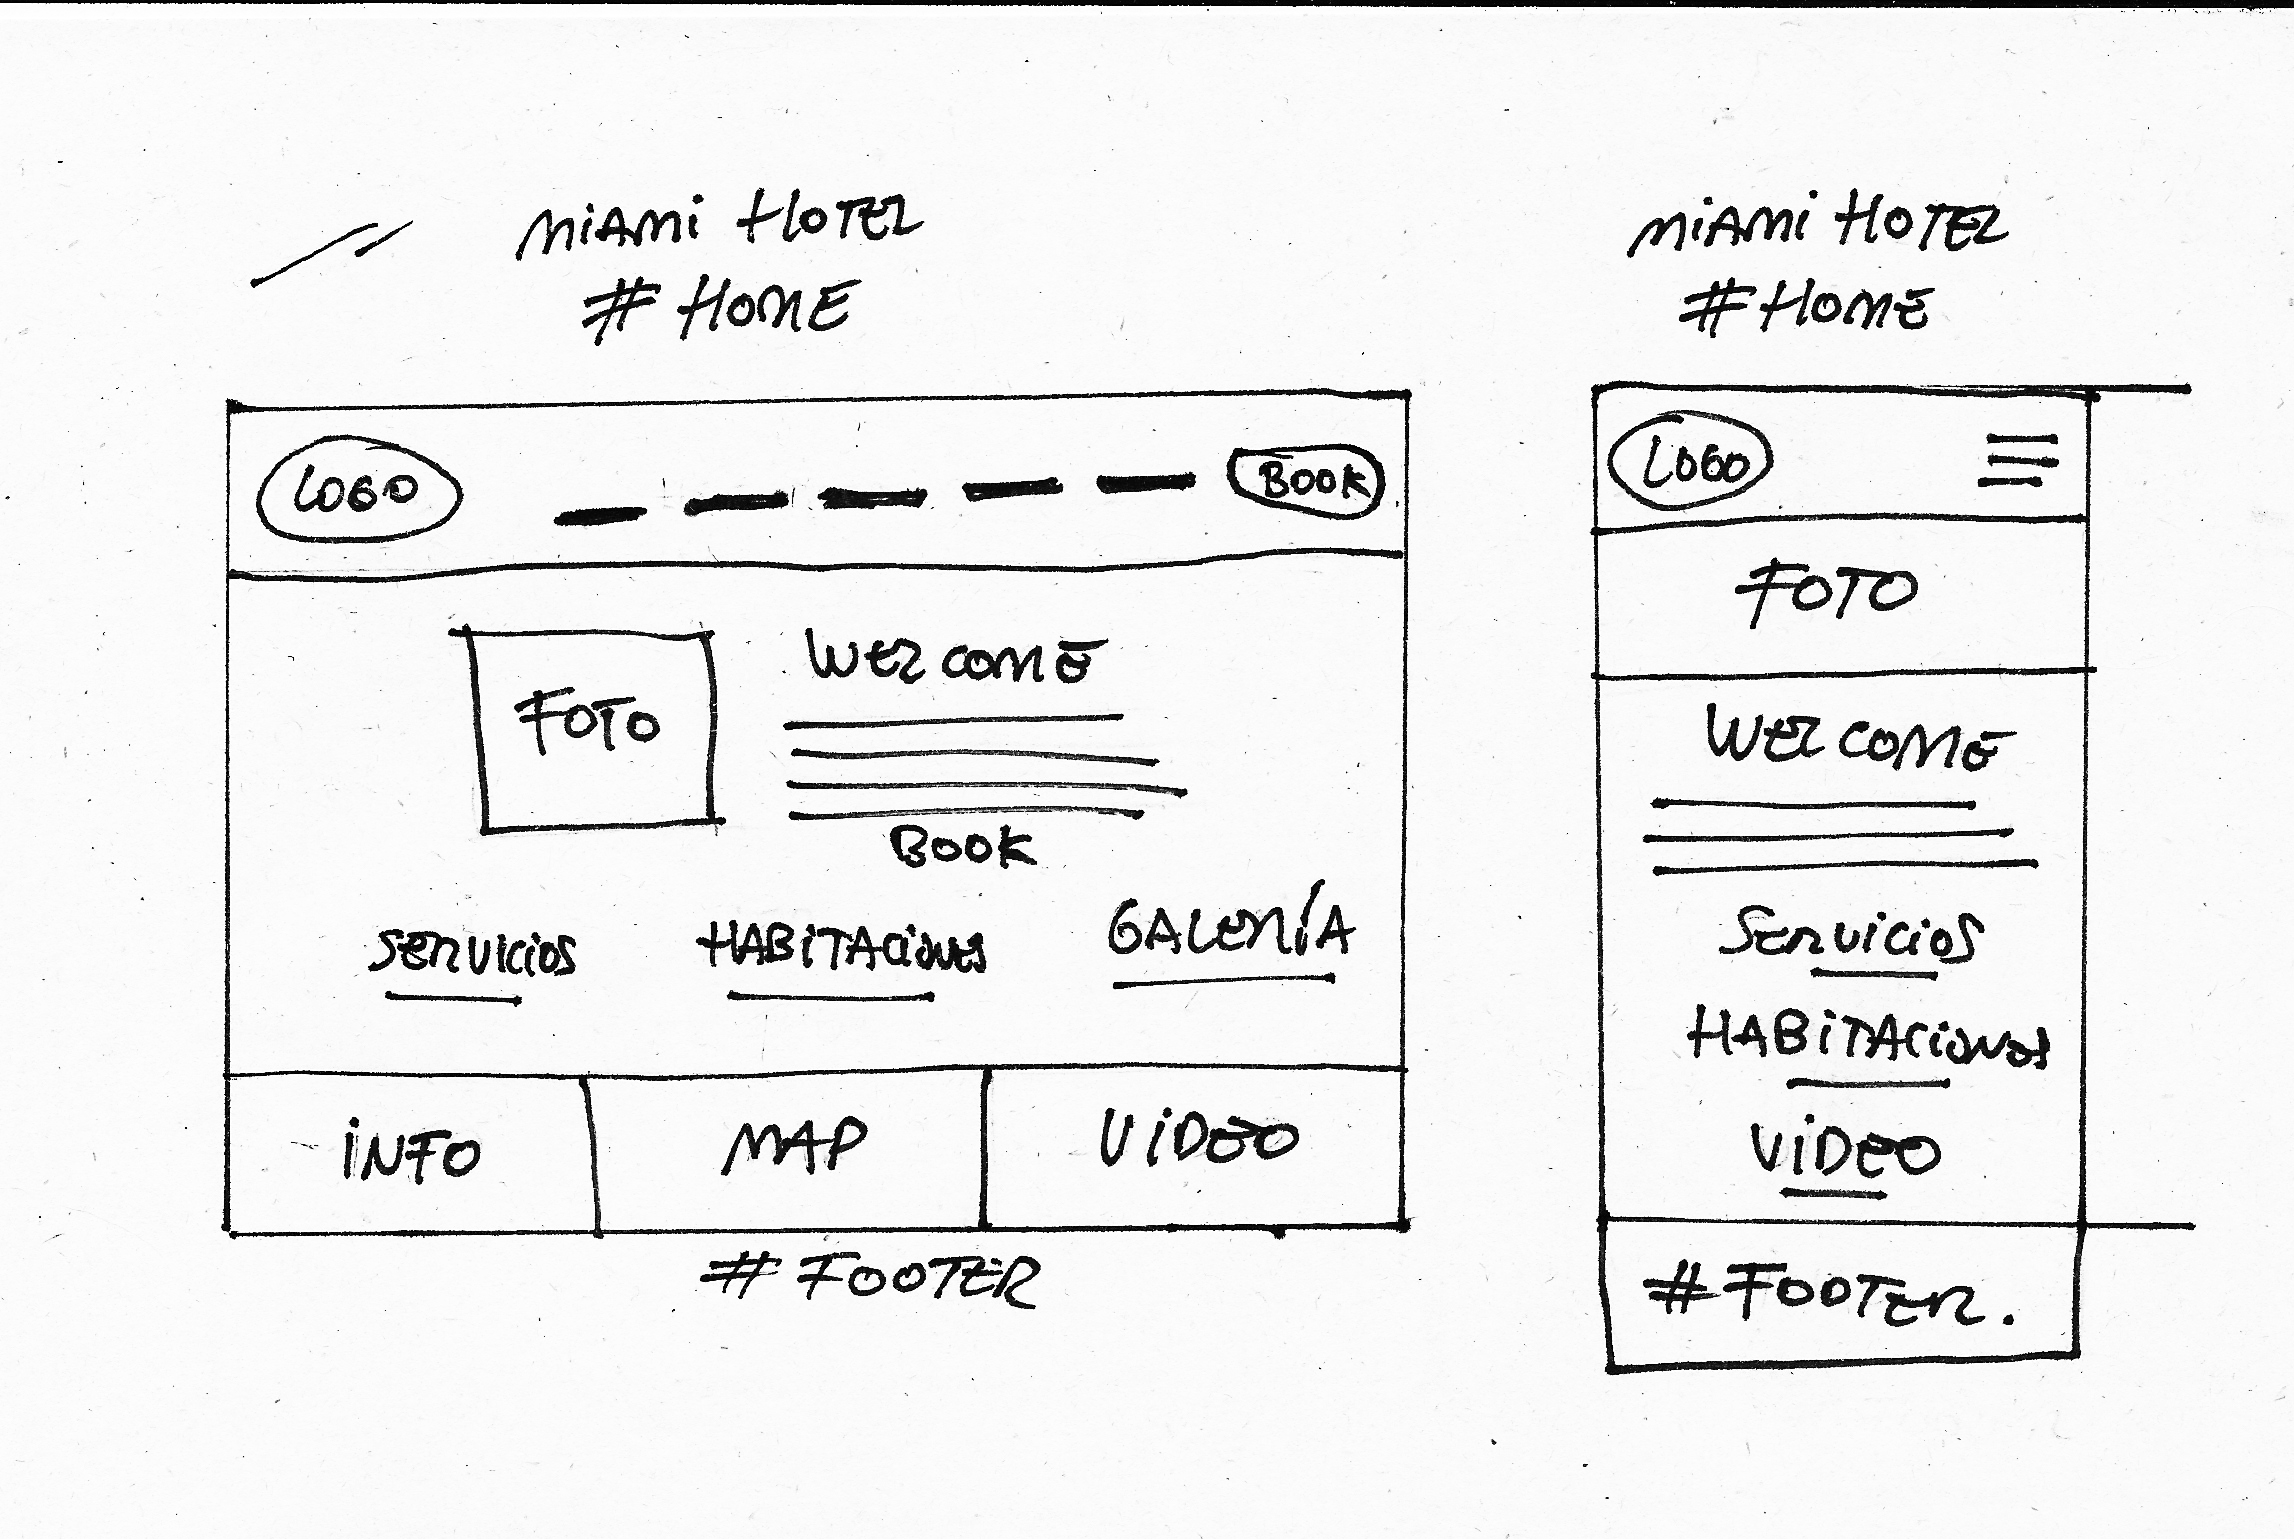 MIAMI HOTEL
# HOME
LOGO
BOOK
FOTO
WELCOME
BOOK
SERVICIOS
HABITACIONES
GALERÍA
INFO
MAP
VIDEO
# FOOTER
MIAMI HOTEL
# HOME
LOGO
FOTO
WELCOME
SERVICIOS
HABITACIONES
VIDEO
# FOOTER.